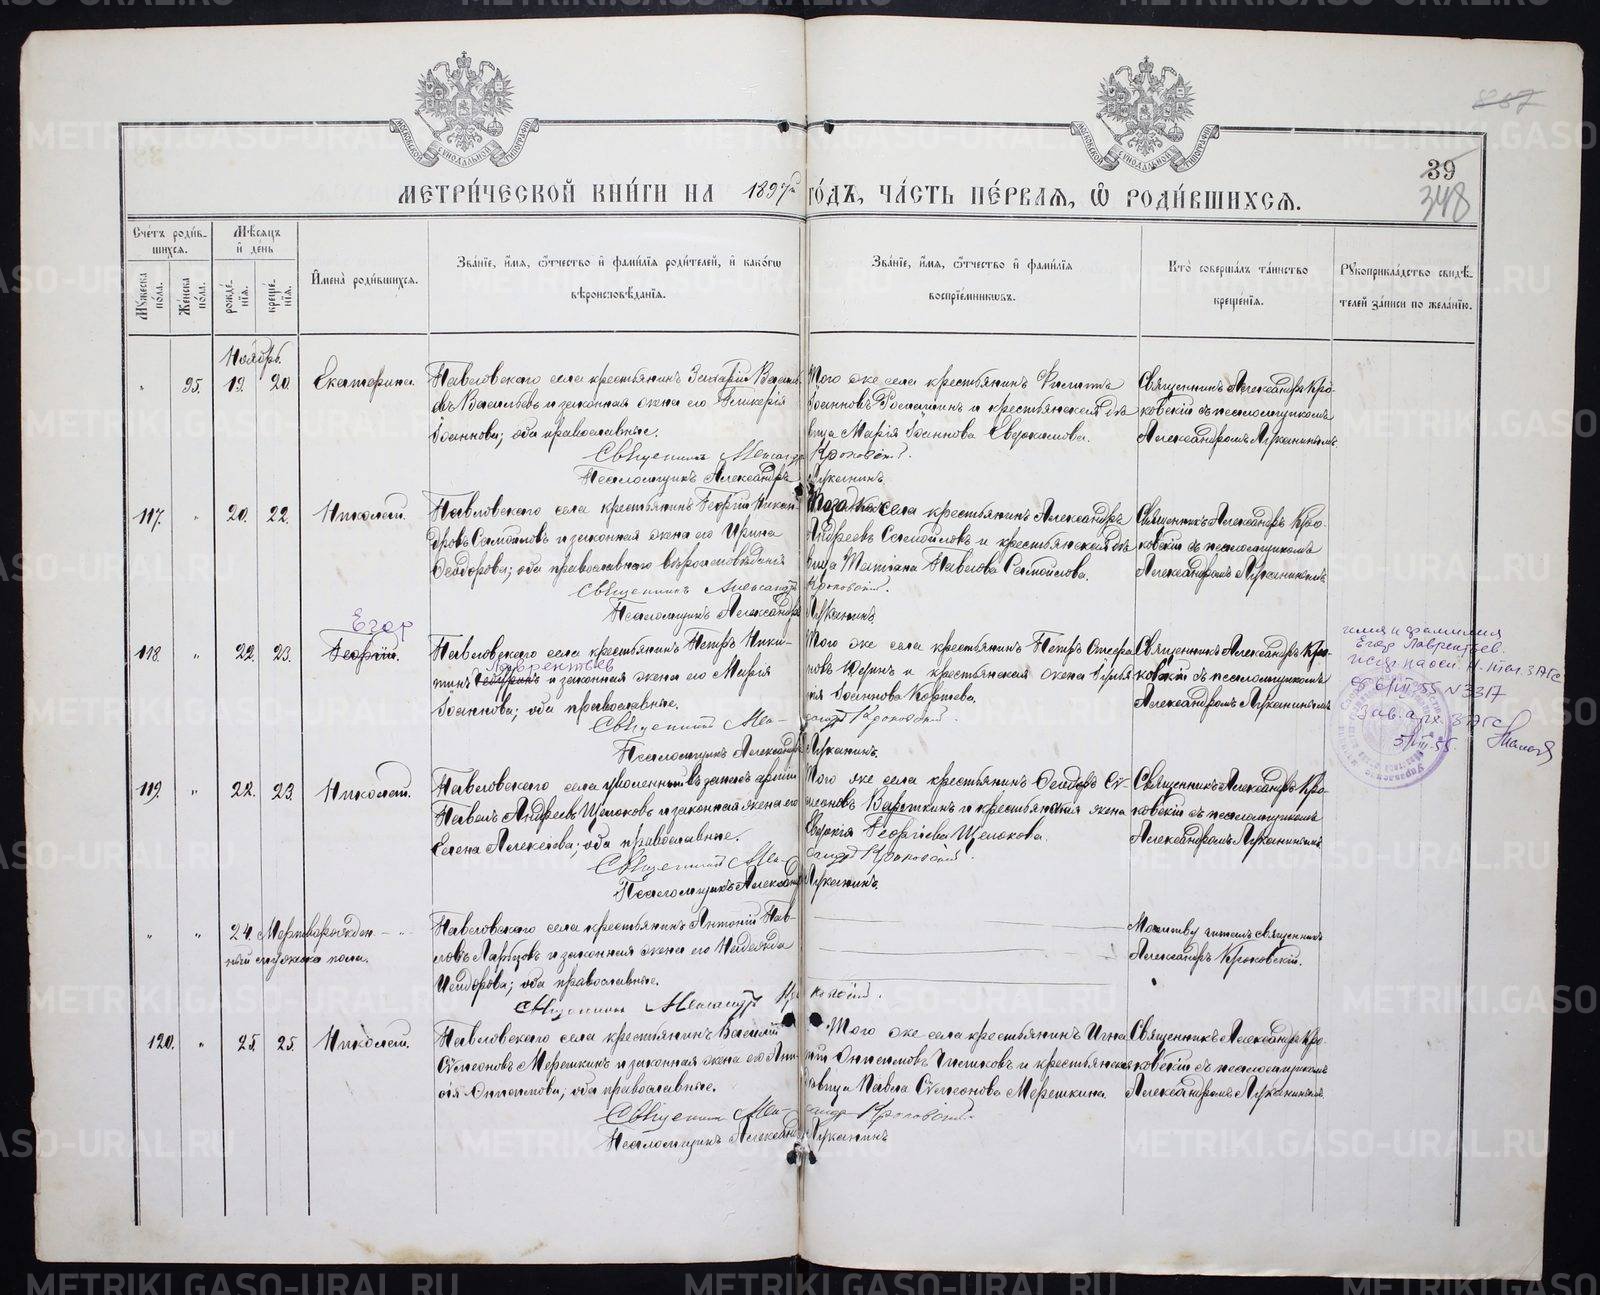 МЕТРИ́ЧЕСКОЙ КНИ́ГИ НА 1897й ГО́ДЪ, ЧА́СТЬ ПЕ́РВАЯ, Ѡ РОДИ́ВШИХСЯ.
39
348
Сче́тъ роди́в-
шихся.
Му́жеска по́ла.
Же́нска по́ла.
Мѣ́сяцъ
и де́нь
рожде́нїя.
креще́нїя.
Имена̀ роди́вшихся.
Зва́нїе, и́мя, ѻ҆́тчество и фами́лїя роди́телей, и како́гѡ
вѣроисповѣ́данїя.
Зва́нїе, и́мя, ѻ҆́тчество и фами́лїя
воспрїе́мникѡвъ.
Кто̀ соверша́лъ та́инство
креще́нїя.
Рꙋкоприкла́дство свидѣ́-
телей за́писи по жела́нїю.
Ноябрь.
" 95. 19. 20. Екатерина.
Павловскаго села крестьянинъ Захарій Василь-
евъ Васильевъ и законная жена его Гликерія
Іоаннова; оба православные.
Священникъ Александръ Крюковскій.
Псаломщикъ Александръ Луканинъ.
Того же села крестьянинъ Филиппъ
Іоанновъ и крестьянская дѣ-
вица Марія Іоаннова Евдокимова.
Священникъ Александръ Крю-
ковскій съ псаломщикомъ
Александромъ Луканинымъ.
117. " 20. 22. Николай.
Павловскаго села крестьянинъ Георгій Никан-
дровъ Самойловъ и законная жена его Ирина
Ѳеодорова; оба православнаго вѣроисповѣданія
Священникъ Александръ Крюковскій.
Псаломщикъ Александръ Луканинъ.
Того же села крестьянинъ Александръ
Андреевъ Самойловъ и крестьянская дѣ-
вица Татіана Павлова Самойлова.
Священникъ Александръ Крю-
ковскій съ псаломщикомъ
Александромъ Луканинымъ.
Егор
118. " 22. 23. Георгій.
Павловскаго села крестьянинъ Петръ Ники-
Лаврентьев
тинъ и законная жена его Марія
Іоаннова; оба православные.
Священникъ Александръ Крюковскій.
Псаломщикъ Александръ Луканинъ.
Того же села крестьянинъ Петръ Стефа-
новъ и крестьянская жена
Іоаннова
Священникъ Александръ Крю-
ковскій съ псаломщикомъ
Александромъ Луканинымъ.
имя и фамилия
Егор Лаврентьев.
испр на осн. ЗАГС
от 6/III 55 N 3317
Зав. арх. ЗАГС
5/VIII-55.
119. " 22. 23. Николай.
Павловскаго села уволенный въ запасъ арміи
Павелъ Андреевъ Щелоковъ и законная жена его
Елена Алексѣева; оба православные.
Священникъ Александръ Крюковскій.
Псаломщикъ Александръ Луканинъ.
Того же села крестьянинъ Ѳеодоръ Сѵ-
меоновъ Вараткинъ и крестьянская жена
Евдокія Георгіева Щелокова.
Священникъ Александръ Крю-
ковскій съ псаломщикомъ
Александромъ Луканинымъ
" " 24. Мертворожден- "
ный мужеска пола.
Павловскаго села крестьянинъ Антоній Пав-
ловъ и законная жена его Надежда
Исидорова; оба православные.
Священникъ Александръ Крюковскій.
Молитву читалъ священникъ
Александръ Крюковскій.
120. " 25. 25. Николай.
Павловскаго села крестьянинъ Василій
Сѵмеоновъ Мерешкинъ и законная жена его Анни-
сія Онисимова; оба православные.
Священникъ Александръ Крюковскій.
Псаломщикъ Александръ Луканинъ
Того же села крестьянинъ Игна-
тій Онисимовъ и крестьянская
дѣвица Павла Сѵмеонова Мерешкина.
Священникъ Александръ Крю-
ковскій съ псаломщикомъ
Александромъ Луканинымъ.
METRIKI.GASO-URAL.RU